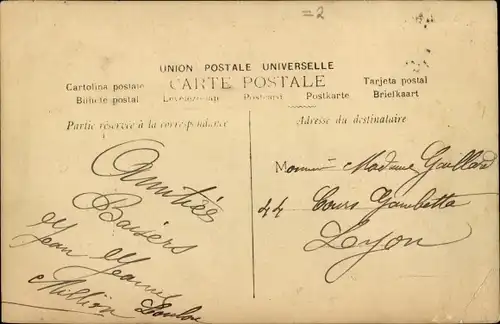 =2
UNION POSTALE UNIVERSELLE
Cartolina postale CARTE POSTALE Tarjeta postal
Bilhete postal Levelezö-Lap Postcard Postkarte Briefkaart
Partie réservée à la correspondance
Adresse du destinataire
Amitiés
Baisers
Jean Jeanne
Million Loulou
Monsieur Madame Gaillard
44 Cours Gambetta
Lyon